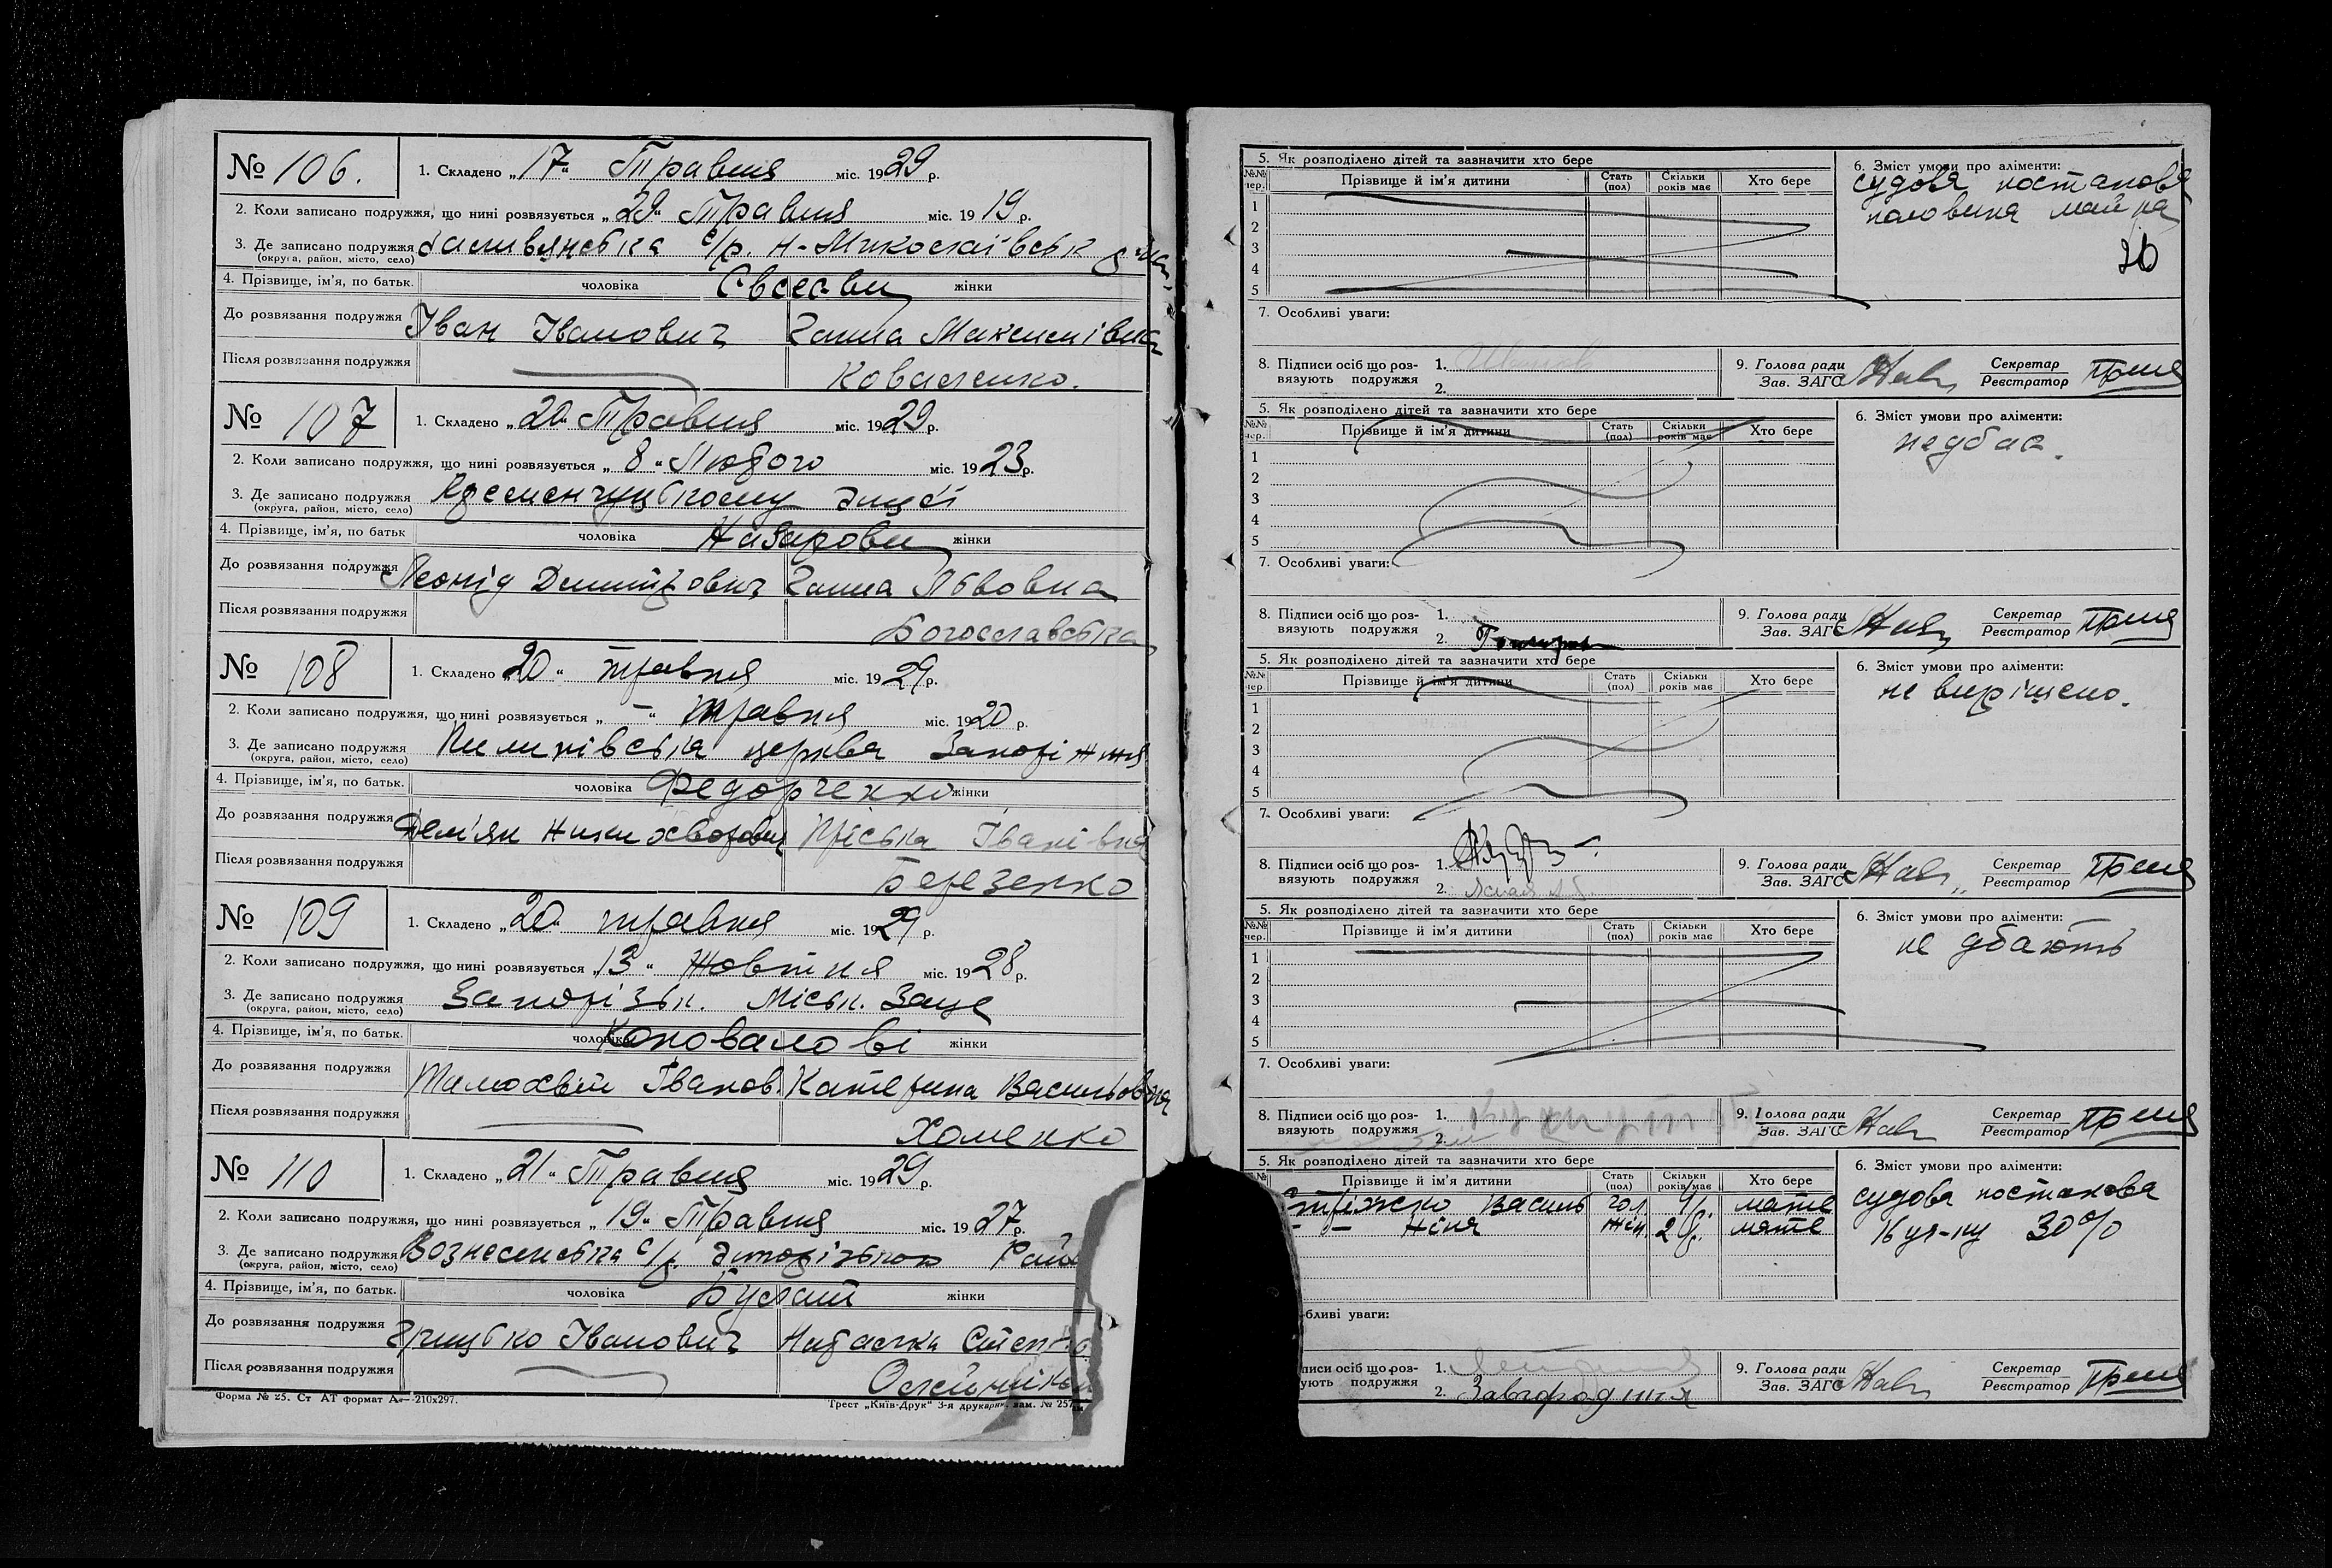 № 106. 1. Складено „17“ Травня міс. 1929 р.
2. Коли записано подружжя, що нині розвязується „29“ Травня міс. 1919 р.
3. Де записано подружжя с/р. Н-Миколаївськ
(округа, район, місто, село)
4. Прізвище, ім’я, по батьк. чоловіка Євсєєви жінки
До розвязання подружжя Іван Іванович Ганна Максимівна
Після розвязання подружжя Коваленко.
№ 107 1. Складено „20“ Травня міс. 1929 р.
2. Коли записано подружжя, що нині розвязується „8“ Лютого міс. 1923 р.
3. Де записано подружжя
(округа, район, місто, село)
4. Прізвище, ім’я, по батьк чоловіка Назарови жінки
До розвязання подружжя Леонід Дмитрович Ганна Львовна
Після розвязання подружжя Богославська
№ 108 1. Складено „20“ травня міс. 1929 р.
2. Коли записано подружжя, що нині розвязується „–“ травня міс. 1920 р.
3. Де записано подружжя церква Запоріжжя
(округа, район, місто, село)
4. Прізвище, ім’я, по батьк. чоловіка Федорченко жінки
До розвязання подружжя Дем'ян Пріська Іванівна
Після розвязання подружжя Березенко
№ 109 1. Складено „20“ травня міс. 1929 р.
2. Коли записано подружжя, що нині розвязується „13“ Жовтня міс. 1928 р.
3. Де записано подружжя Запорізьк. Міськ. Загс
(округа, район, місто, село)
4. Прізвище, ім’я, по батьк. чоловіка Коновалові жінки
До розвязання подружжя Тимохвій Іванов. Катерина Васильовна
Після розвязання подружжя Хоменко
№ 110 1. Складено „21“ Травня міс. 1929 р.
2. Коли записано подружжя, що нині розвязується „19“ Травня міс. 1927 р.
3. Де записано подружжя Вознесенська с/р.
(округа, район, місто, село)
4. Прізвище, ім’я, по батьк. чоловіка Булат жінки
До розвязання подружжя Грицько Іванович Наталка
Після розвязання подружжя
Форма № 25. Ст АТ формат А₄—210х297. Трест „Київ-Друк“ 3-я друкарня. зам. № 257
5. Як розподілено дітей та зазначити хто бере 6. Зміст умови про аліменти:
№№ чер. Прізвище й ім’я дитини Стать (пол) Скільки років має Хто бере
судова постанова
1
половина майна
2
3
4
5
7. Особливі уваги:
8. Підписи осіб що роз- 1. 9. Голова ради Секретар
вязують подружжя 2. Зав. ЗАГС Реєстратор
5. Як розподілено дітей та зазначити хто бере 6. Зміст умови про аліменти:
№№ чер. Прізвище й ім’я дитини Стать (пол) Скільки років має Хто бере
недбає.
1
2
3
4
5
7. Особливі уваги:
8. Підписи осіб що роз- 1. 9. Голова ради Секретар
вязують подружжя 2. Зав. ЗАГС Реєстратор
5. Як розподілено дітей та зазначити хто бере 6. Зміст умови про аліменти:
№№ чер Прізвище й ім’я дитини Стать (пол) Скільки років має Хто бере
не вирішено.
1
2
3
4
5
7. Особливі уваги:
8. Підписи осіб що роз- 1. 9. Голова ради Секретар
вязують подружжя 2. Зав. ЗАГС Реєстратор
5. Як розподілено дітей та зазначити хто бере 6. Зміст умови про аліменти:
№№ чер. Прізвище й ім’я дитини Стать (пол) Скільки років має Хто бере
не дбають
1
2
3
4
5
7. Особливі уваги:
8. Підписи осіб що роз- 1. 9. Голова ради Секретар
вязують подружжя 2. Зав. ЗАГС Реєстратор
5. Як розподілено дітей та зазначити хто бере 6. Зміст умови про аліменти:
Прізвище й ім’я дитини Стать (пол) Скільки років має Хто бере
Василь чол. 4 мате судова постанова
– – Ніна жін. 2 мате 30%
бливі уваги:
писи осіб що роз- 1. 9. Голова ради Секретар
ують подружжя 2. Завгородния Зав. ЗАГС Реєстратор